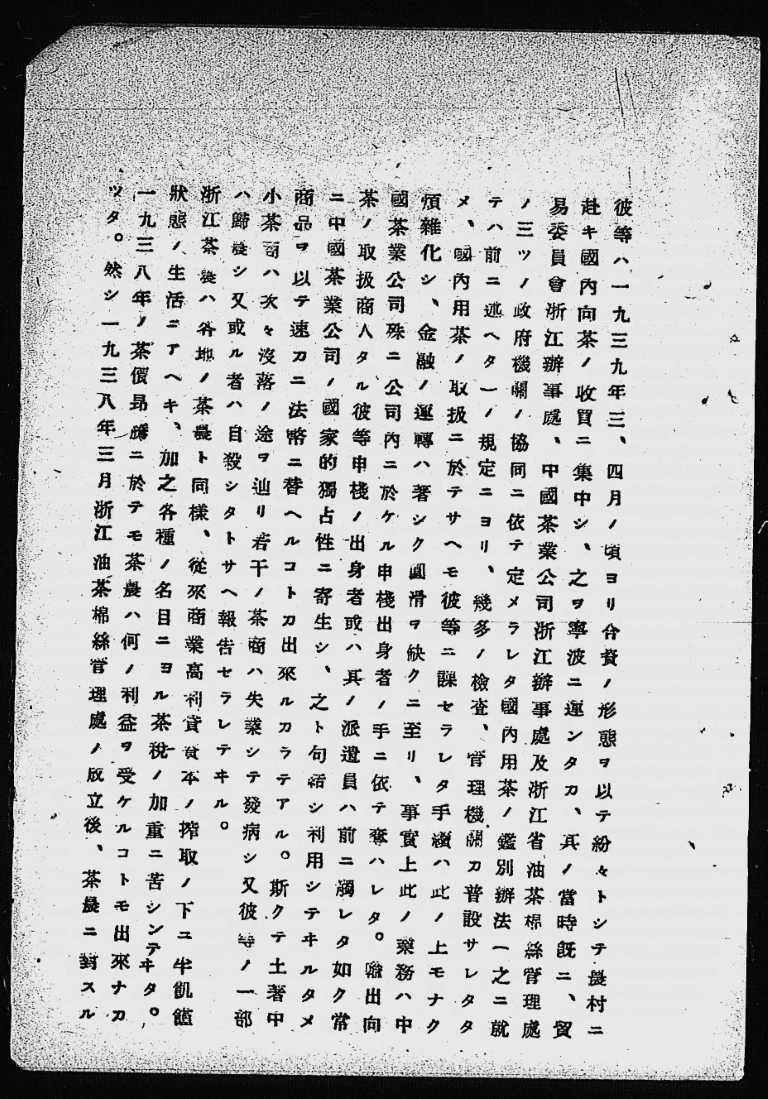 彼等ハ一九三九年三、四月ノ頃ヨリ合資ノ形態ヲ以テ紛々トシテ農村ニ
赴キ國內向茶ノ收買ニ集中シ、之ヲ寧波ニ運ンタカ、其ノ當時既ニ、貿
易委員會浙江辦事處、中國茶業公司浙江辦事處及浙江省油茶棉絲管理處
ノ三ツノ政府機關ノ協同ニ依テ定メラレタ國內用茶ノ鑑別辦法一之ニ就
テハ前ニ述ヘタ一ノ規定ニヨリ、幾多ノ檢査、管理機關カ普設サレタタ
メ、國內用茶ノ取扱ニ於テサヘモ彼等ニ課セラレタ手續ハ此ノ上モナク
煩雜化シ、金融ノ運轉ハ著シク圓滑ヲ缺クニ至リ、事實上此ノ業務ハ中
國茶業公司殊ニ公司內ニ於ケル申棧出身者ノ手ニ依テ奪ハレタ。輸出向
茶ノ取扱商人タル彼等申棧ノ出身者或ハ其ノ派遣員ハ前ニ觸レタ如ク常
ニ中國茶業公司ノ國家的獨占性ニ寄生シ、之ト句結シ利用シテヰルタメ
商品ヲ以テ速カニ法幣ニ替ヘルコトカ出來ルカラテアル。斯クテ土著中
小茶商ハ次々沒落ノ途ヲ辿リ若干ノ茶商ハ失業シテ發病シ又彼等ノ一部
ハ歸農シ又或ル者ハ自殺シタトサヘ報告セラレテヰル。
浙江茶農ハ各地ノ茶農ト同樣、從來商業高利貸資本ノ搾取ノ下ニ半飢餓
狀態ノ生活ニアヘキ、加之各種ノ名目ニヨル茶稅ノ加重ニ苦シンテヰタ。
一九三八年ノ茶價昂騰ニ於テモ茶農ハ何ノ利益ヲ受ケルコトモ出來ナカ
ツタ。然シ一九三八年三月浙江油茶棉絲管理處ノ成立後、茶農ニ對スル